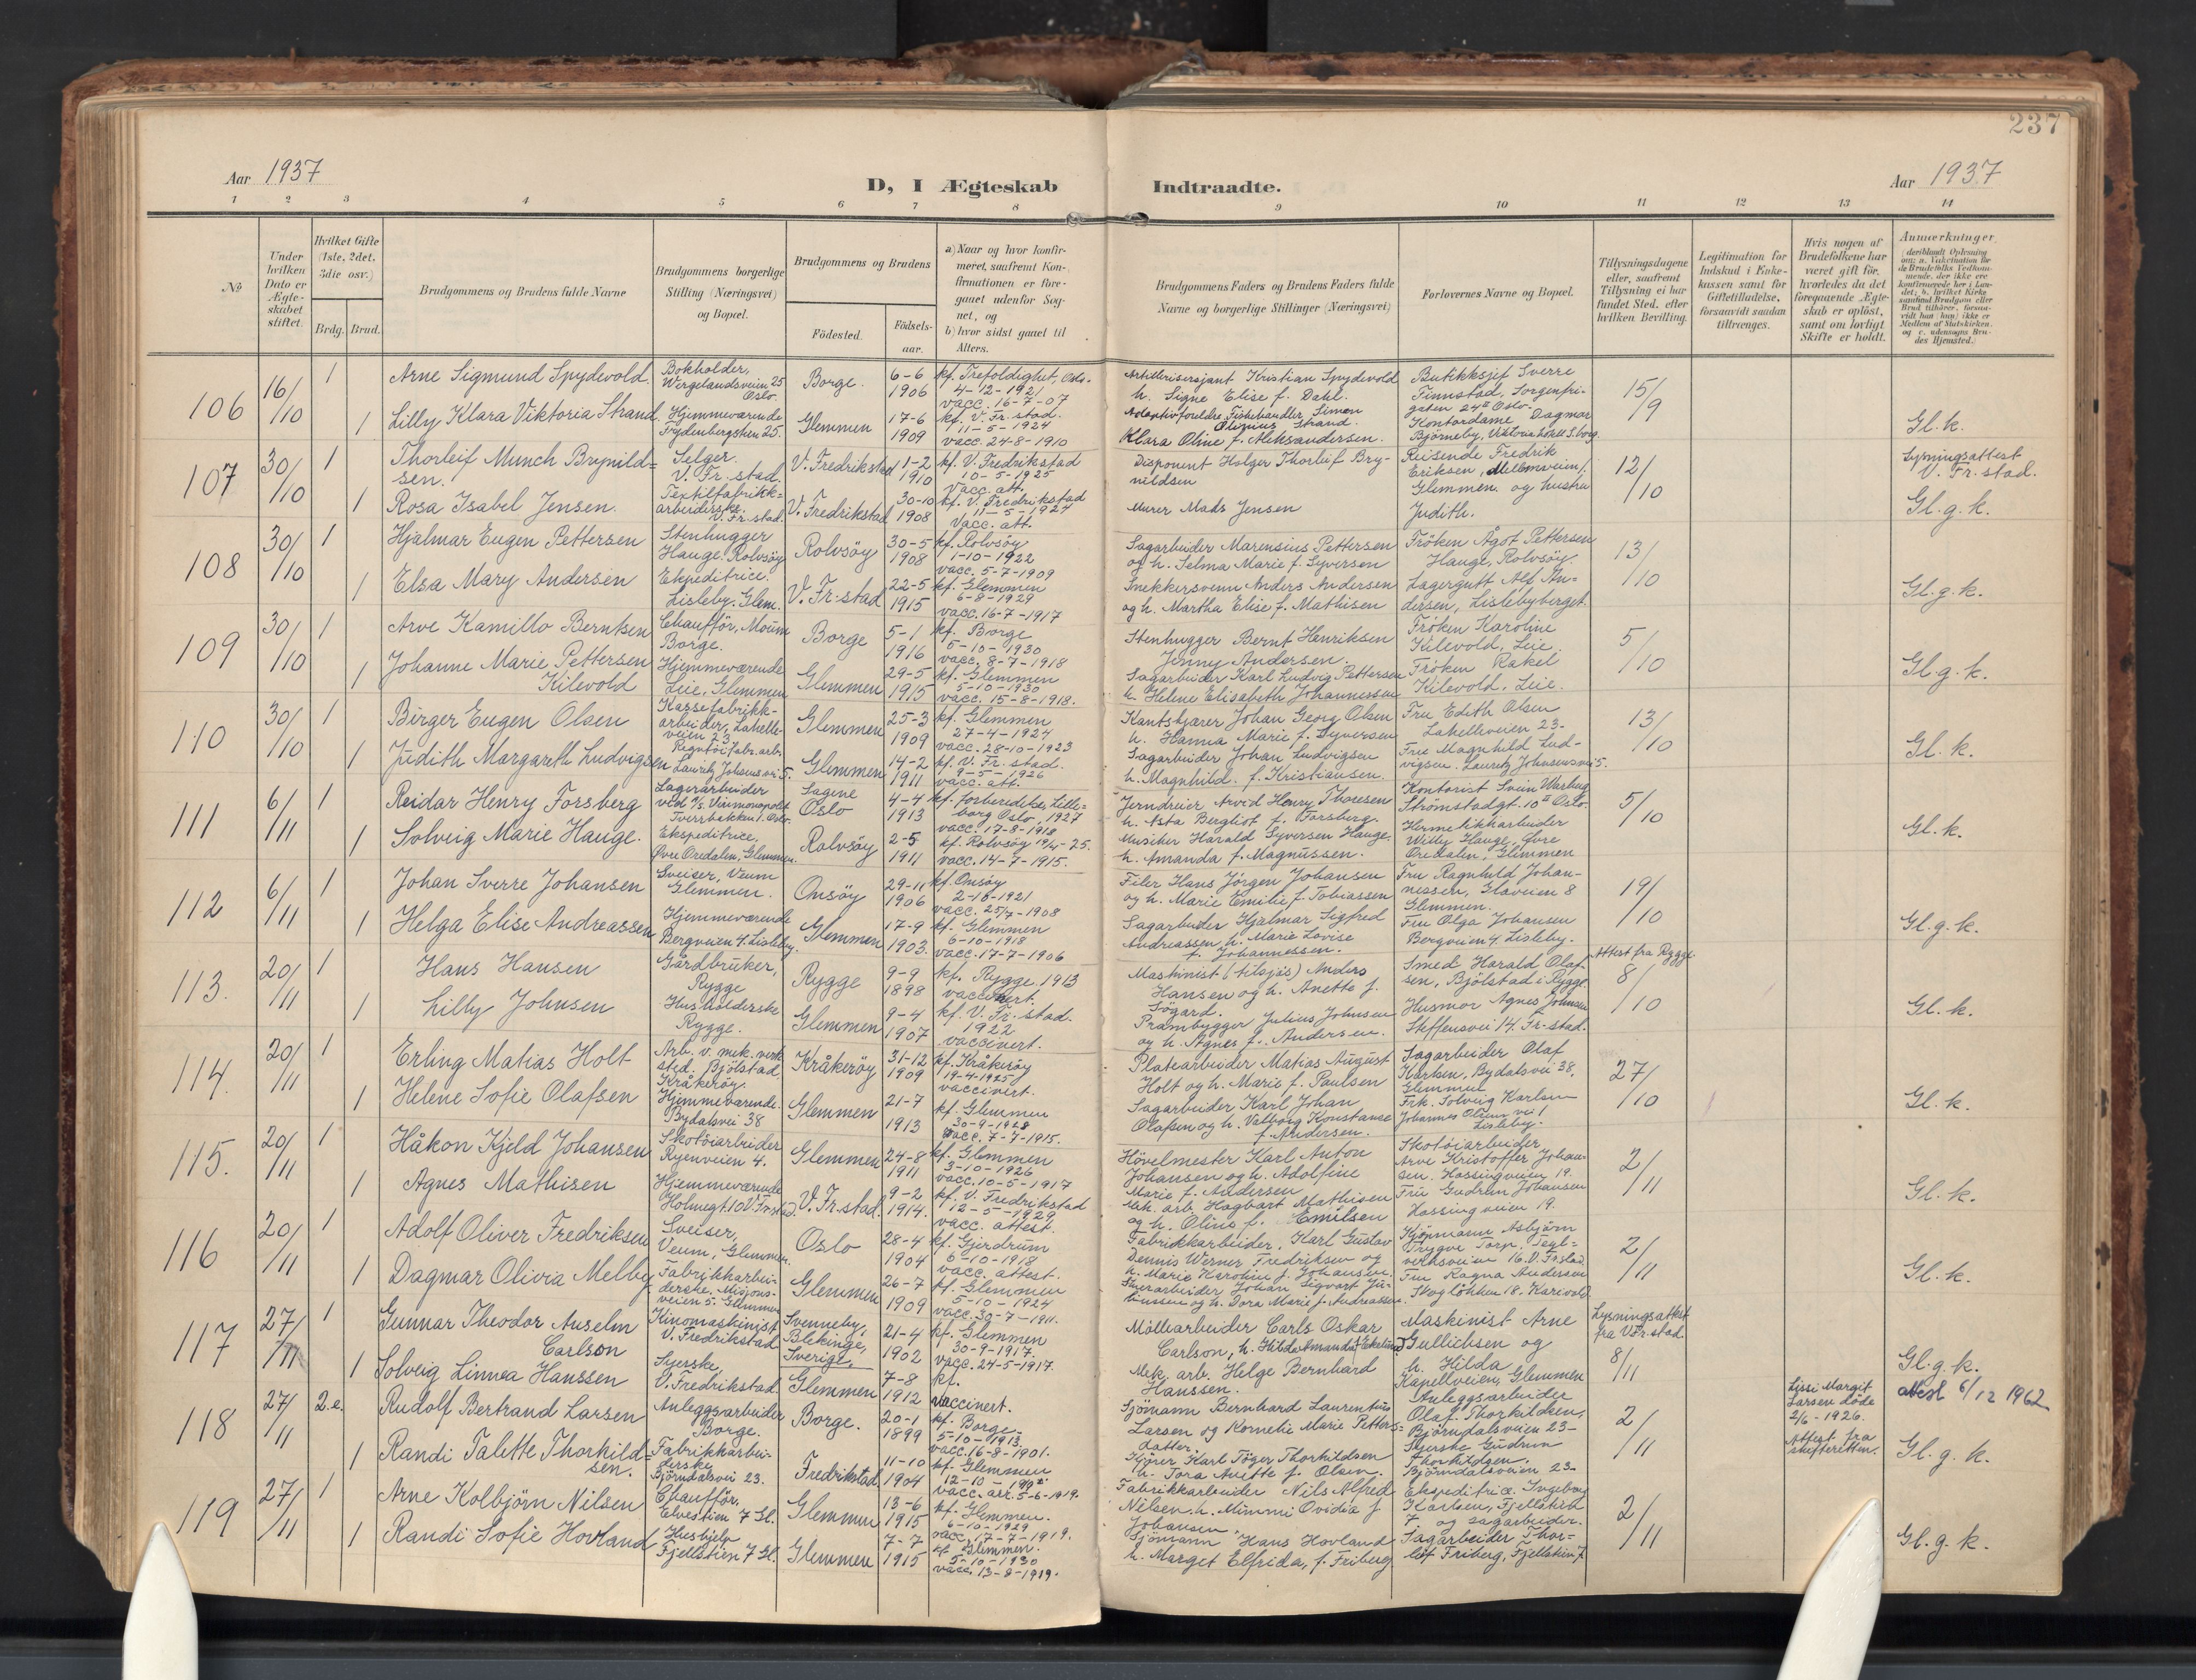 237
Aar 1937
D, I Ægteskab Indtraadte.
Aar 1937
1 2 3 4 5 6 7 8 9 10 11 12 13 14
No
Under hvilken Dato er Ægteskabet stiftet.
Hvilket Gifte (1ste, 2det, 3die osv.)
Brdg. Brud.
Brudgommens og Brudens fulde Navne
Brudgommens borgerlige Stilling (Næringsvei) og Bopæl.
Brudgommens og Brudens
Födested.
Födsels-aar.
a) Naar og hvor konfirmeret, saafremt Konfirmationen er foregaaet udenfor Sognet, og
b) hvor sidst gaaet til Alters.
Brudgommens Faders og Brudens Faders fulde Navne og borgerlige Stillinger (Næringsvei)
Forlovernes Navne og Bopæl.
Tillysningsdagene eller, saafremt Tillysning ei har fundet Sted, efter hvilken Bevilling.
Legitimation for Indskud i Enkekassen samt for Giftetilladelse, forsaavidt saadan tiltrænges.
Hvis nogen af Brudefolkene har været gift för, hvorledes da det foregaaende Ægteskab er oplöst, samt om lovligt Skifte er holdt.
Anmærkninger
106 16/10 1
Arne Sigmund Spydevold.
Bokholder, Wergelandsveien 25 Oslo.
Borge.
6-6 1906
kf. Trefoldighet, Oslo. 4-12-1921 vacc. 16-7-07
Artillerisersjant Kristian Spydevold h. Signe Elise f. Dahl.
Butikksjef Sverre Finnstad, Sorgenfrigaten 24 II Oslo.
15/9
1
Lilly Klara Viktoria Strand.
Hjemmeværende Frydenbergstien 25.
Glemmen
17-6 1909
kf. V. Fr.stad. 11-5-1924 vacc. 24-8-1910
Adoptivforeldre Fiskehandler Simon Oliginius Strand. Klara Oline f. Aleksandersen.
Kontordame Dagmar Björneby,
Gl. k.
107 30/10 1
Thorleif Munch Brynildsen.
Selger. V. Fr.stad.
V. Fredrikstad
11-2 1910
kf. V. Fredrikstad 10-5-1925 Vacc. att.
Disponent Holger Thorleif Brynildsen
Reisende Fredrik Eriksen, Glemmen. og hustru Judith.
12/10
Lysningsattest V. Fr.stad.
1
Rosa Isabel Jensen.
Textilfabrikkarbeiderske. V. Fr.stad.
V. Fredrikstad
30-10 1908
kf. V. Fredrikstad 11-5-1924 Vacc. att.
Murer Mads Jensen
Gl. g. k.
108 30/10 1
Hjalmar Eugen Pettersen
Stenhugger Hauge, Rolvsöy
Rolvsöy
30-5 1908
kf. Rolvsöy 1-10-1922 vacc. 5-7-1909
Sagarbeider Marensius Pettersen og h. Selma Marie f. Syversen
Fröken Ågot Pettersen Hauge, Rolvsöy.
13/10
1
Elsa Mary Andersen
Ekspeditrice. Lisleby. Glem.
V. Fr.stad
22-5 1915
kf. Glemmen 6-8-1929 vacc. 16-7-1917
Snekkersvenn Anders Andersen og h. Martha Elise f. Mathisen
Lagergutt Alf Andersen, Lislebyberget.
Gl. g. k.
109 30/10 1
Arve Kamillo Berntsen
Chaufför, Moum Borge.
Borge
5-1 1916
kf. Borge 5-10-1930 vacc. 8-7-1918
Stenhugger Bernt Henriksen Jenny Andersen.
Fröken Karoline Kilevold, Leie
5/10
1
Johanne Marie Pettersen Kilevold
Hjemmeværende Leie, Glemmen
Glemmen
29-5 1915
kf. Glemmen 5-10-1930 vacc. 15-8-1918.
Sagarbeider Karl Ludvig Pettersen h. Helene Elisabeth Johannessen
Fröken Rakel Kilevold. Leie.
Gl. g. k.
110 30/10 1
Birger Eugen Olsen
Kassefabrikkarbeider, Lahelleveien 23
Glemmen
25-3 1909
kf. Glemmen 27-4-1924 vacc. 28-10-1923
Kantskjærer Johan Georg Olsen h. Hanna Marie f. Syversen
Fru Edith Olsen Lahelleveien 23-
13/10
1
Judith Margareth Ludvigsen
Regntöifabr.arb. Lauritz Johnsensvei 5.
Glemmen
14-2 1911
kf. V. Fr.stad. 9-5-1926 vacc. att.
Sagarbeider Johan Ludvigsen h. Magnhild. f. Kristiansen.
Fru Magnhild Ludvigsen. Lauritz Johnsensvei 5.
Gl. k.
111 6/11 1
Reidar Henry Forsberg
Lagerarbeider ved A/S. Vinmonopolet Tverrbakken 1. Oslo.
Sagene Oslo
4-4 1913
kf. Lilleborg Oslo, 1927 vacc. 17-8-1918
Jerndreier Arvid Henry Thoresen h. Asta Bergliot f. Forsberg.
Kontorist Svein Warberg Strömstadgt. 10 II Oslo.
5/10
1
Solveig Marie Hauge.
Ekspeditrice, Övre Oredalen, Glemmen.
Rolvsöy
2-5 1911
kf. Rolvsöy 19/4-25. vacc. 14-7-1915.
Musiker Harald Syversen Hauge. h. Amanda f. Magnussen.
Hermetikkarbeider Willy Hauge, Övre Oredalen, Glemmen
Gl. k.
112 6/11 1
Johan Sverre Johansen
Sveiser, Veum Glemmen.
Onsöy
29-11 1906
kf. Onsöy 2-10-1921 vacc. 25/7-1908
Filer Hans Jörgen Johansen og h. Marie Emilie f. Tobiassen
Fru Ragnhild Johannessen, Glaveien 8 Glemmen.
19/10
1
Helga Elise Andreassen
Hjemmeværende Bergveien 4. Lisleby.
Glemmen
17-9 1903.
kf. Glemmen 6-10-1918 vacc. 17-7-1906
Sagarbeider Hjalmar Sigfred Andreassen, h. Marie Lovise f. Johannessen.
Fru Olga Johansen Bergveien 4. Lisleby.
Gl. g. k.
113. 20/11 1
Hans Hansen
Gårdbruker, Rygge
Rygge
9-9 1898
kf. Rygge 1913 vaccinert.
Maskinist (tilsjøs) Anders Hansen og h. Anette f. Sögard.
Smed Harald Olafsen, Bjölstad i Rygge.
Attest fra Rygge. 8/10
1
Lilly Johnsen
Husholderske Rygge.
Glemmen
9-4 1907
kf. V. Fr.stad. 1922 vaccinert.
Prambygger Julius Johnsen og h. Agnes f. Andersen.
Husmor Agnes Johnsen Steffensvei 14. Fr.stad.
Gl. k.
114. 20/11 1
Erling Matias Holt
Arb. v. mek. verksted. Bjölstad, Kråkeröy.
Kråkeröy
31-12 1909
kf. Kråkeröy 19-4-1925 vaccinert.
Platearbeider Matias August Holt og h. Marie f. Paulsen
Sagarbeider Olaf Karlsen, Bydalsvei 38, Glemmen
27/10
1
Helene Sofie Olafsen
Hjemmeværende. Bydalsvei 38
Glemmen
21-7 1913
kf. Glemmen 30-9-1928 vacc. 7-7-1915.
Sagarbeider Karl Johan Olafsen og h. Valborg Konstanse f. Andersen.
Frk. Solveig Karlsen Johannes Olsens vei 1 Lisleby.
Gl. k.
115. 20/11 1
Håkon Kjeld Johansen
Skotöiarbeider Ryenveien 4.
Glemmen
24-8 1911
kf. Glemmen 3-10-1926 vacc. 10-5-1917
Hövelmester Karl Anton Johansen og h. Adolfine Marie f. Andersen
Skotöiarbeider Arve Kristoffer Johansen. Hassingveien 19.
2/11
1
Agnes Mathisen
Hjemmeværende Holmegt. 10 V. Fr.stad.
V. Fr.stad.
9-2 1914.
kf. V. Fredrikstad 12-5-1929 vacc. attest.
Mek. arb. Hagbart Mathisen og h. Oline f. Emilsen
Fru Gudrun Johansen Hassingveien 19.
Gl. k.
116 20/11 1
Adolf Oliver Fredriksen
Sveiser, Veum, Glemmen.
Oslo
28-4 1904
kf. Gjerdrum 6-10-1918 vacc. attest.
Fabrikkarbeider, Karl Gustav Dennis Werner Fredriksen og h. Marie Karoline f. Johansen.
Kjöpmann Asbjörn Trygve Torp, Teglverksveien 16. V. Fr.stad.
2/11
1
Dagmar Olivia Melby
Fabrikkarbeiderske. Misjonsveien 5. Glemmen
Glemmen
26-7 1909
kf. Glemmen 5-10-1924 vacc. 30-7-1911.
Johan Sigvart og h. Dora Marie f. Andreassen.
Fru Ragna Andersen Skoglökken 18.
Gl. k.
117 27/11 1
Gunnar Theodor Anselm Carlson
Kinomaskinist V. Fredrikstad
Svenneby, Blekinge, Sverige
21-4 1902
kf. Glemmen 30-9-1917. vacc. 24-5-1917.
Mölliarbeider Carls Oskar Carlson, h. Hilda Amanda f. Ekelund
Maskinist Arne Gullichsen og h. Hilda Kapellveien, Glemmen
Lysningsattest fra V. Fr.stad. 8/11
1
Solveig Linnea Hanssen
Syerske, V. Fredrikstad
Glemmen
7-8 1912
kf. Vaccinert.
Mek. arb. Helge Bernhard Hanssen.
Gl. g. k. attest 6/12 1962
118 27/11 2.e.
Rudolf Bertrand Larsen
Anleggsarbeider Borge.
Borge.
20-1 1899
kf. Borge. 5-10-1913. vacc. 16-8-1901.
Sjömann Bernhard Laurentius Larsen og Kornelie Marie Pettersdatter.
Anleggsarbeider Olaf Thorkildsen, Björndalsveien 23-
2/11
Lissi Margit Larsen döde 2/6-1926. Attest fra skifteretten.
1
Randi Talette Thorkildsen.
Fabrikkarbeiderske Björndalsvei 23.
Fredrikstad
11-10 1904
kf. Glemmen 12-10- vacc. att. 5-6-1919.
Kjörer Karl Töger Thorkildsen h. Tora Anitte f. Olsen.
Syerske Gudrun Thorkildsen. Björndalsveien 23-
Gl. g. k.
119 27/11 1
Arne Kolbjörn Nilsen
Chaufför, Elvestien 7 Gl.
Glemmen
13-6 1915
kf. Glemmen. 6-10-1929 vacc. 17-7-1919.
Fabrikkarbeider Nils Alfred Nilsen h. Mimmi Ovidia f. Johansen.
Ekspeditrice Ingeborg Karlsen, Fjellstien 7 og sagarbeider.
2/11
1
Randi Sofie Hovland
Hushjelp Fjellstien 7 Gl.
Glemmen
7-7 1915
kf. Glemmen. 5-10-1930 vacc. 13-8-1919.
Sjömann Hans Hovland h. Marget Elfrida, f. Friberg
Sagarbeider Thorleif Friberg, Fjellstien 7.
Gl. g. k.